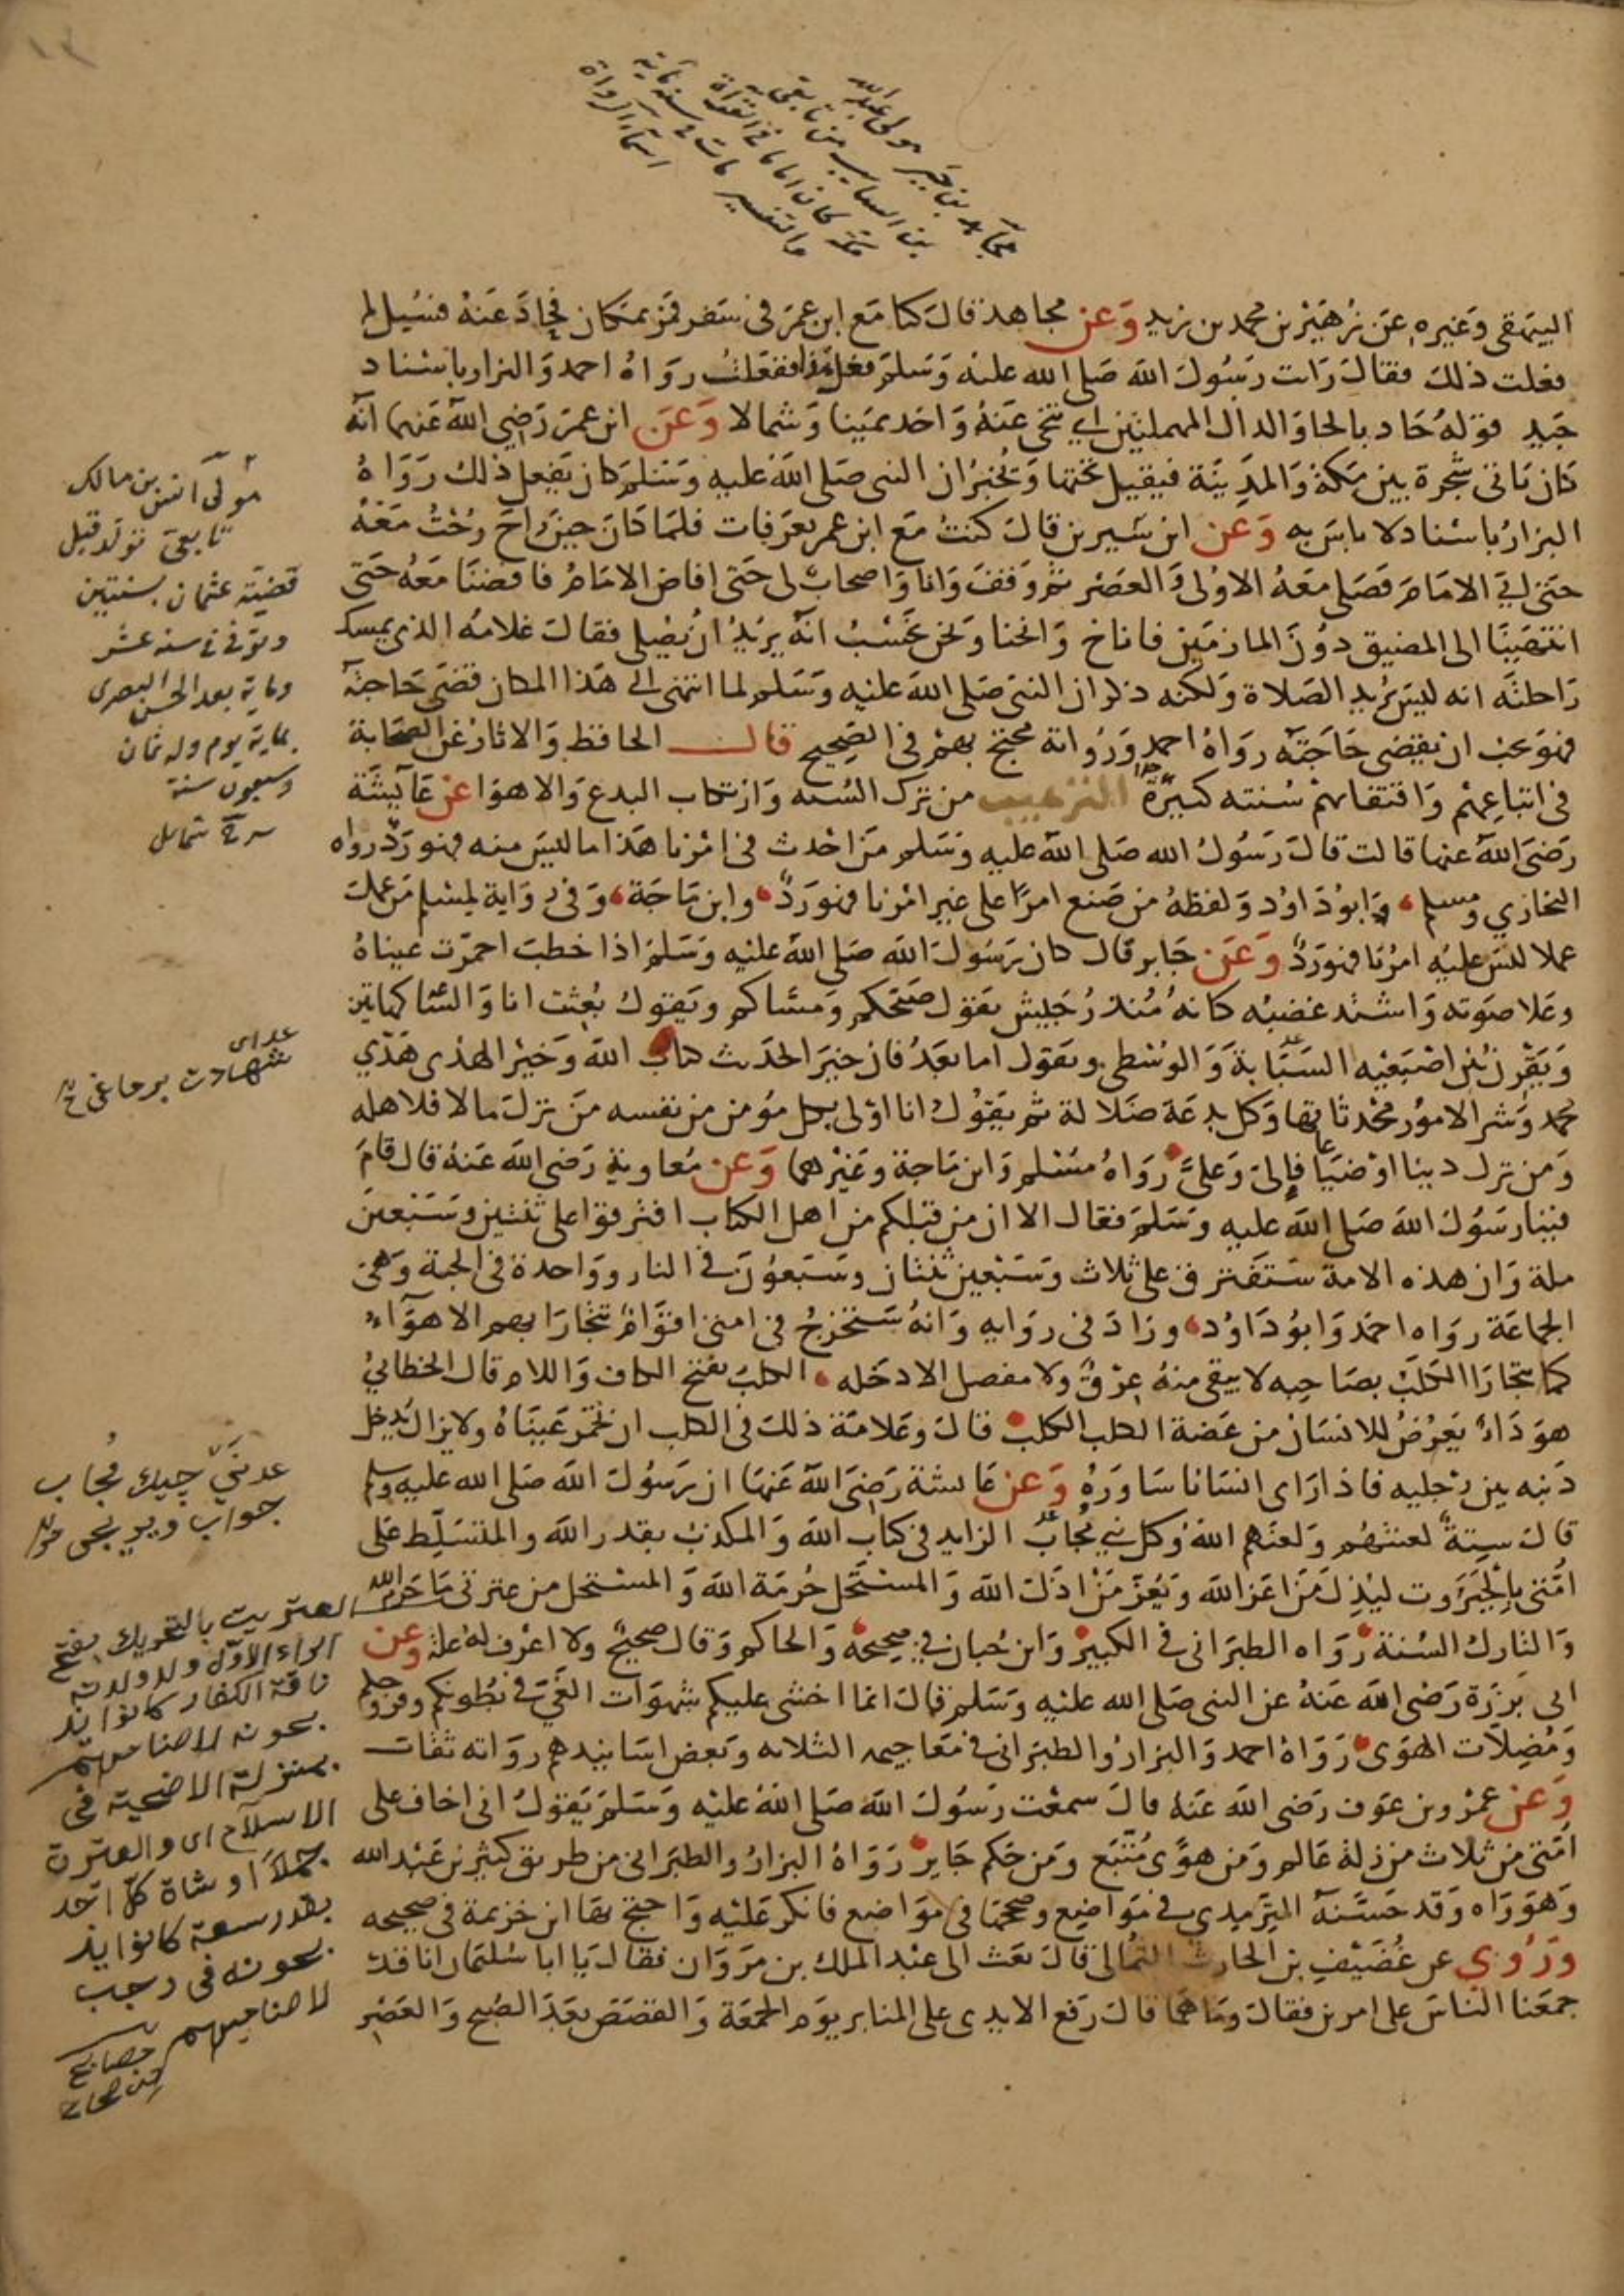 مجاهد بن جبير مولى عبد الله
بن السايب من تابعى
مكة كان اماما فى القراة
والتفسير مات فى سنة ماية
اسماء الرواة
البيهقى وغيره عن زهير بن محمد بن زيد وعن مجاهد قال كنا مع ابن عمر فى سفر فمر بمكان فحاد عنه فسيل لم
فعلت ذلك فقال رات رسول الله صلى الله عليه وسلم فعل هذا ففعلت رواه احمد والبزار باسناد
جيد قوله حاد بالحا والدال المهملتين اي تنحى عنه واخد يمينا وشمالا وعن ابن عمر رضي الله عنهما انه
كان ياتى شجرة بين مكة والمدينة فيقيل تحتها ويخبر ان النبى صلى الله عليه وسلم كان يفعل ذلك رواه
البزار باسناد لا باس به وعن ابن سيرين قال كنت مع ابن عمر بعرفات فلما كان حين راح رحت معه
حتى اتى الامام فصلى معه الاولى والعصر ثم وقف وانا واصحاب لى حتى افاض الامام فافضنا معه حتى
انتهينا الى المضيق دون المازمين فاناخ وانخنا ونحن نحسب انه يريد ان يصلى فقال غلامه الذى يمسك
راحلته انه ليس يريد الصلاة ولكنه ذكر ان النبى صلى الله عليه وسلم لما انتهى الى هذا المكان قضى حاجته
فهو يحب ان يقضى حاجته رواه احمد ورواته محتج بهم فى الصحيح قال الحافظ والاثار عن الصحابة
فى اتباعهم واقتفائهم سنته كثيرة جدا الترهيب من ترك السنه وارتكاب البدع والاهوا عن عايشة
رضى الله عنها قالت قال رسول الله صلى الله عليه وسلم من احدث فى امرنا هذا ما ليس منه فهو رد رواه
البخاري ومسلم وابو داود ولفظه من صنع امرا على غير امرنا فهو رد وابن ماجة وفى رواية لمسلم من عمل
عملا ليس عليه امرنا فهو رد وعن جابر قال كان رسول الله صلى الله عليه وسلم اذا خطب احمرت عيناه
وعلا صوته واشتد غضبه كانه منذر جيش يقول صبحكم ومساكم ويقول بعثت انا والساعة كهاتين
ويقرن بين اصبعيه السبابة والوسطى ويقول اما بعد فان خير الحديث كتاب الله وخير الهدى هدي
محمد وشر الامور محدثاتها وكل بدعة ضلالة ثم يقول انا اولى بكل مؤمن من نفسه من ترك مالا فلاهله
ومن ترك دينا او ضياعا فالى وعلى رواه مسلم وابن ماجة وغيرهما وعن معاوية رضى الله عنه قال قام
فينا رسول الله صلى الله عليه وسلم فقال الا ان من قبلكم من اهل الكتاب افترقوا على ثنتين وسبعين
ملة وان هذه الامة ستفترق على ثلاث وسبعين ثنتان وسبعون فى النار وواحدة فى الجنة وهى
الجماعة رواه احمد وابو داود وزاد فى روايه وانه سيخرج فى امتى اقوام تتجارا بهم الاهواء
كما يتجارا الكلب بصاحبه لا يبقى منه عرق ولا مفصل الا دخله الكلب بفتح الكاف واللام قال الخطابى
هو داء يعرض للانسان من عضة الكلب الكلب قال وعلامة ذلك فى الكلب ان تحمر عيناه ولا يزال يدخل
ذنبه بين رجليه فاذا راى انسانا ساوره وعن عائشة رضى الله عنها ان رسول الله صلى الله عليه وسلم
قال ستة لعنتهم ولعنهم الله وكل نبي مجاب الزايد فى كتاب الله والمكذب بقدر الله والمتسلط على
امتى بالجبروت ليذل من اعز الله ويعز من اذل الله والمستحل حرمة الله والمستحل من عترتى ما حرم الله
والتارك السنة رواه الطبرانى فى الكبير وابن حبان فى صحيحه والحاكم وقال صحيح ولا اعرف له علة وعن
ابى برزة رضى الله عنه عن النبى صلى الله عليه وسلم قال انما اخشى عليكم شهوات الغى فى بطونكم وفروجكم
ومضلات الهوى رواه احمد والبزار والطبرانى فى معاجيمه الثلاثه وبعض اسانيدهم رواته ثقات
وعن عمرو بن عوف رضى الله عنه قال سمعت رسول الله صلى الله عليه وسلم يقول انى اخاف على
امتى من ثلاث من زلة عالم ومن هوى متبع ومن حكم جاير رواه البزار والطبرانى من طريق كثير بن عبد الله
وهو واه وقد حسنه الترميدي فى مواضع وصححها فى مواضع فانكر عليه واحتج بها ابن خزيمة فى صحيحه
وروي عن غضيف بن الحارث الثمالى قال بعث الى عبد الملك بن مروان فقال يا ابا سليمان انا قد
جمعنا الناس على امرين فقال وما هما قال رفع الايدى على المنابر يوم الجمعة والقصص بعد الصبح والعصر
مولى انس بن مالك
تابعى تولد قبل
قضية عثمان بسنتين
وتوفى فى سنه عشر
وماية بعد الحسن البصرى
بماية يوم وله ثمان
وسبعون سنة
شمايل
شهادت
مجاب
جواب
العتريت بالتحريك بفتح
الراء الاول ولد ولدته
ناقة الكفار كانوا يذ
بحونه لاصنامهم
بمنزلة الاضحية فى
الاسلام اى والعترت
جملا او شاة كل احد
بقدر سعة كانوا يذ
بحونه فى رجب
لاصناميهم